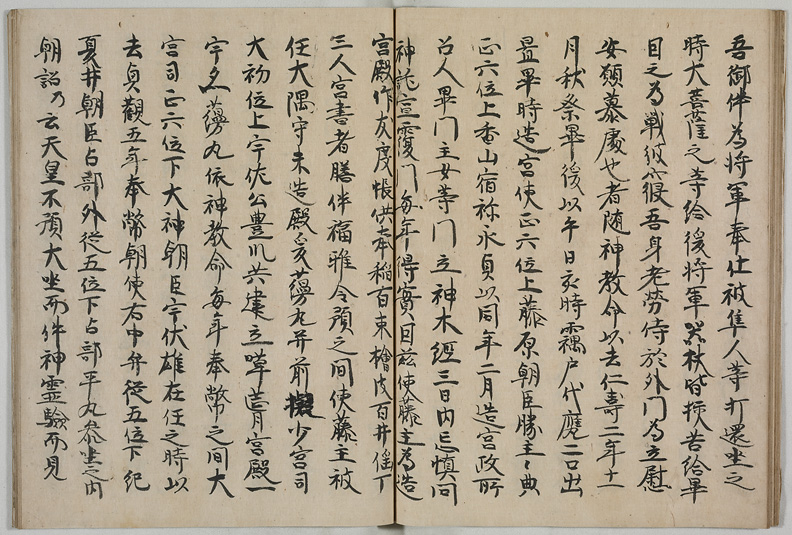 吾御伴為将軍奉仕被隼人等打還坐之
時大菩薩之等給後将軍器杖皆捺吉給畢
目之為戦彼不假吾身老労侍於外門為立慰
安願慕慶也者随神教令以去仁寿二年十一
月秋祭畢後以午日亥時霧戸代麿二口出
畳畢時造宮使正六位上藤原朝臣勝主々典
正六位上香山宿祢永貞以同年二月造宮政所
召人畢門主女等門立神木経三日内忌慎問
神託宣覆門毎年得實因茲使藤主為造
宮殿作友度帳供奉稲百束檜皮百井徭丁
三人宮書者膳伴福雅令預之間使藤主被
任大隅守未造殿爰薧丸并前擬少宮司
大初位上宇佐公豊川共建立草葺宮殿一
宇名薧丸依神教命毎年奉幣之間大
宮司正六位下大神朝臣宇佐雄在任之時以
去貞観五年奉幣朝使右中弁従五位下紀
夏井朝臣占部外従五位下占部平丸参坐之内
朝詔乃云天皇不預大坐而件神霊験所見